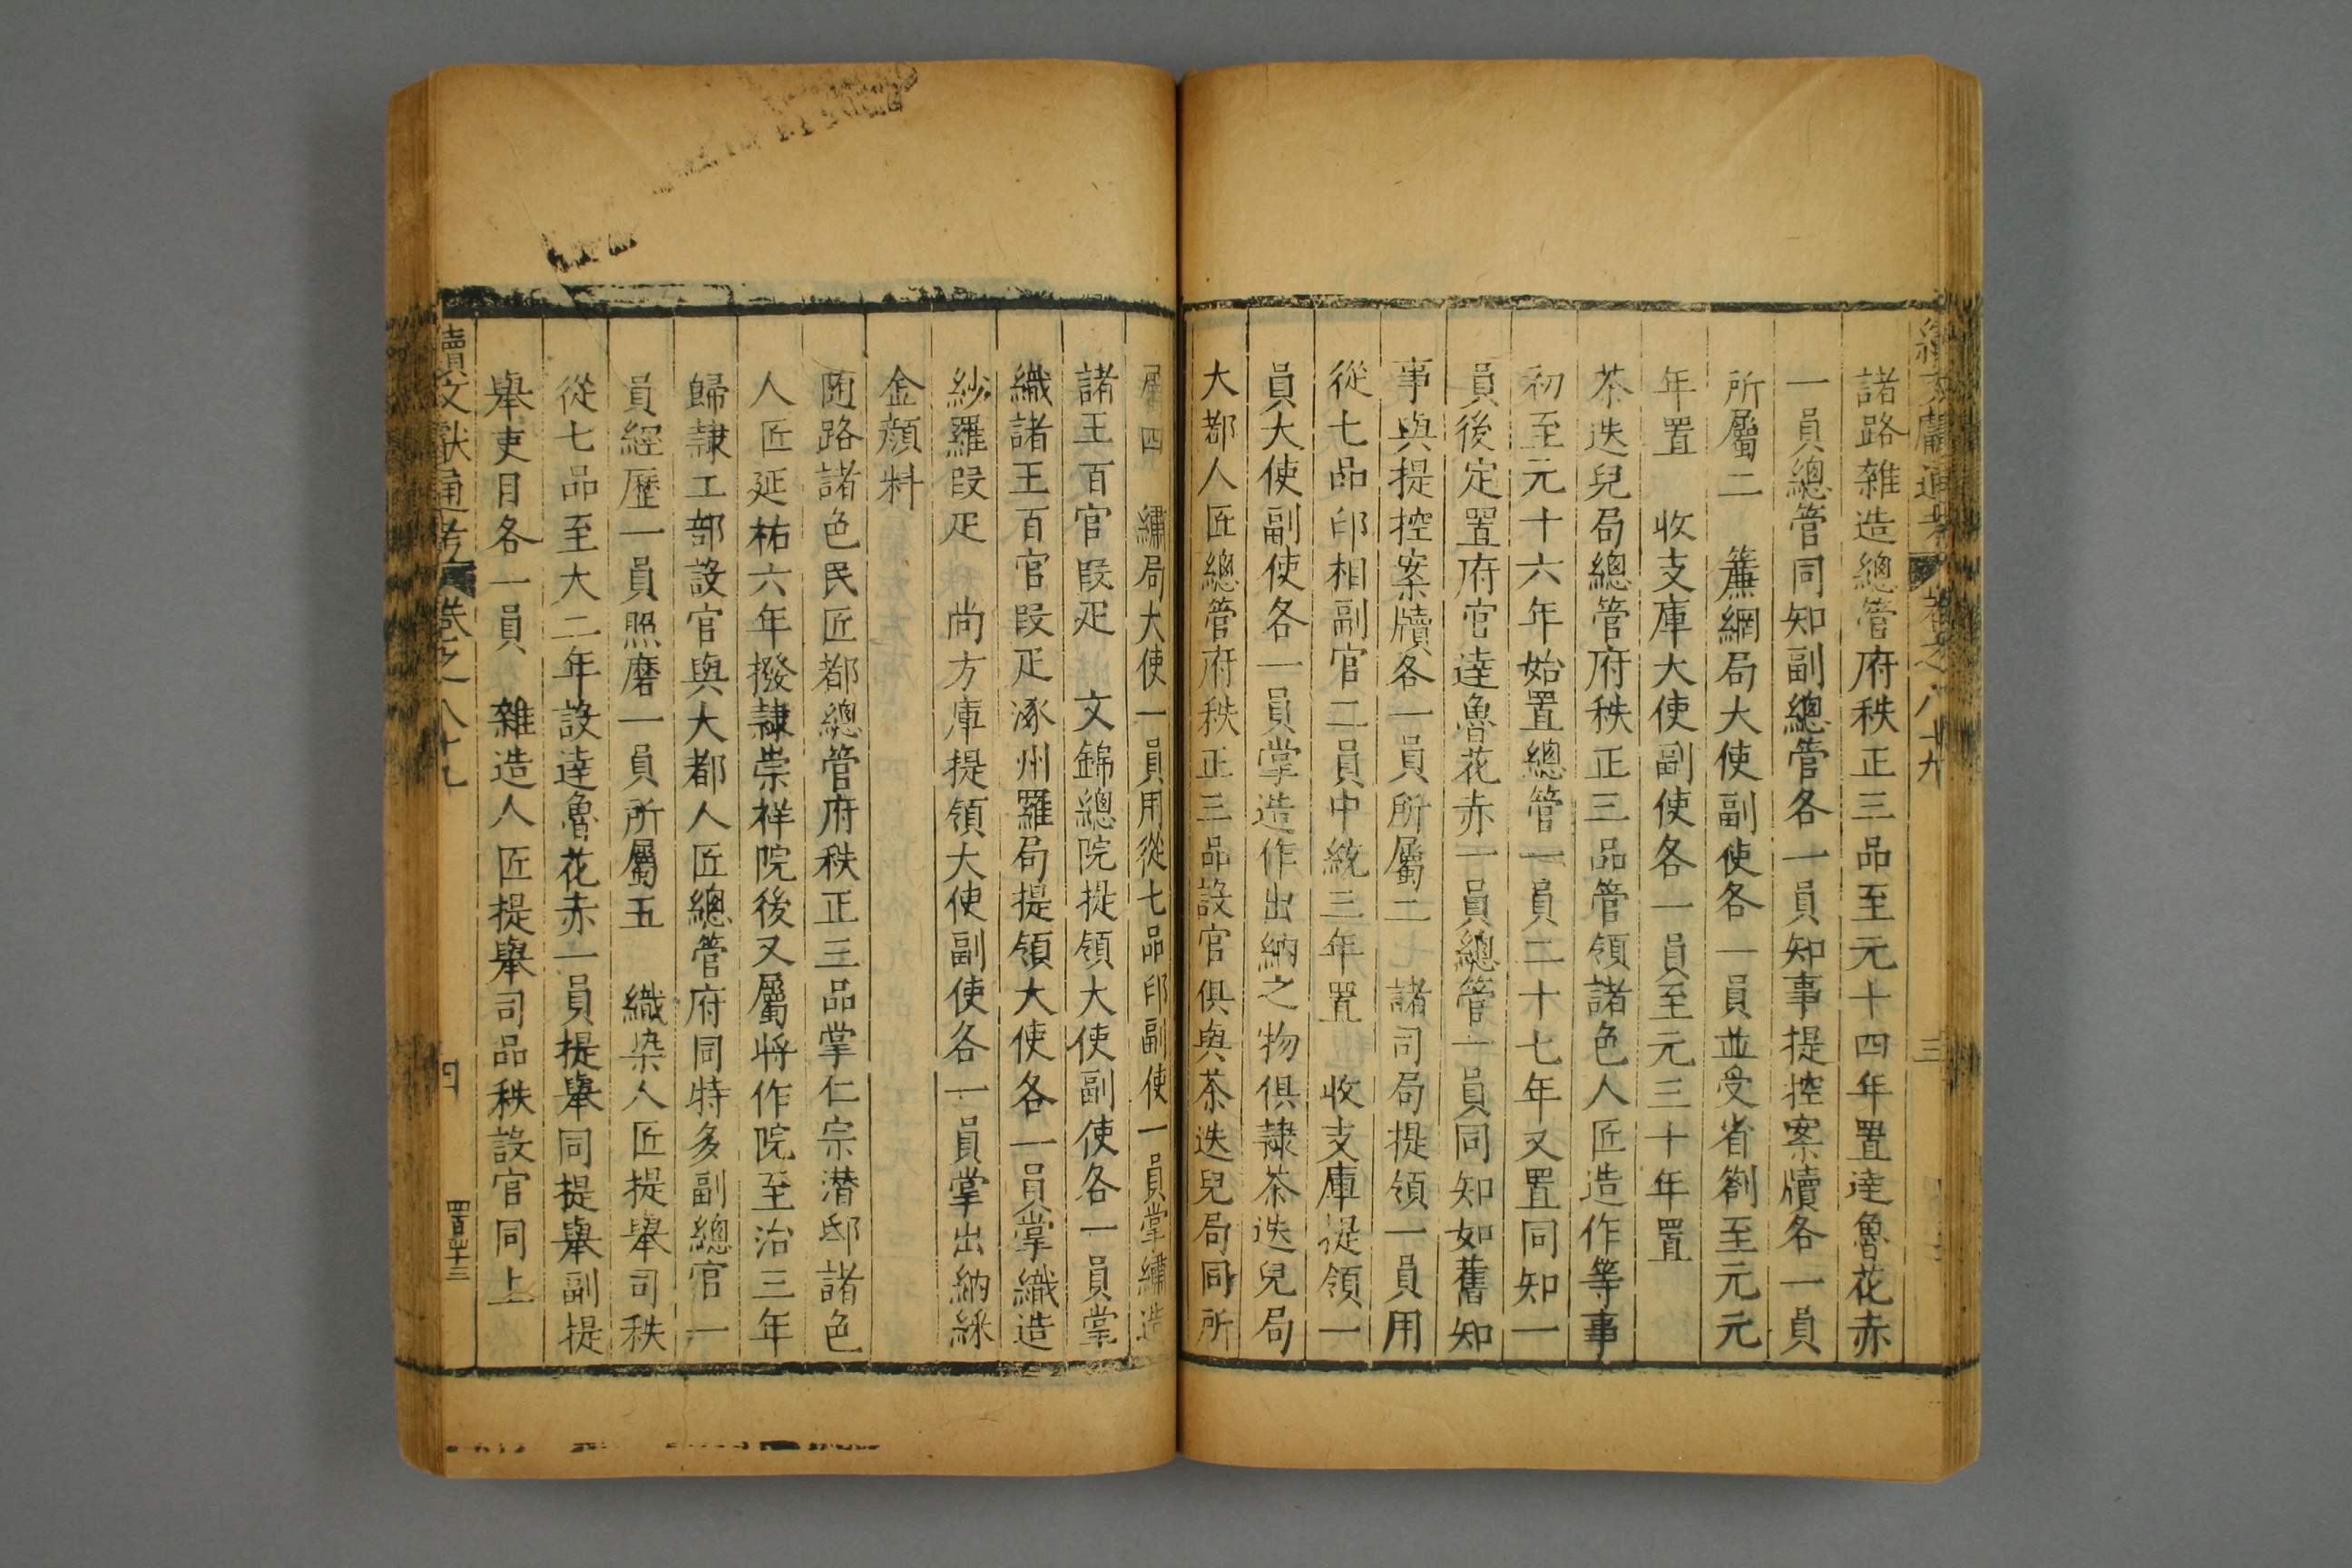 續文獻通考 卷之八十九 三
諸路雜造總管府秩正三品至元十四年置達魯花赤
一員總管同知副總管各一員知事提控案牘各一員
所屬二 簾網局大使副使各一員並受省劄至元元
年置 收支庫大使副使各一員至元三十年置
茶迭兒局總管府秩正三品管領諸色人匠造作等事
初至元十六年始置總管一員二十七年又置同知一
員後定置府官達魯花赤一員總管一員同知如舊知
事與提控案牘各一員所屬二 諸司局提領一員用
從七品印相副官二員中統三年置 收支庫提領一
員大使副使各一員掌造作出納之物俱隸茶迭兒局
大都人匠總管府秩正三品設官俱與茶迭兒局同所
屬四 繡局大使一員用從七品印副使一員掌繡造
諸王百官段疋 文錦總院提領大使副使各一員掌
織諸王百官段疋 涿州羅局提領大使各一員掌織造
紗羅段疋 尚方庫提領大使副使各一員掌出納絲
金顔料
随路諸色民匠都總管府秩正三品掌仁宗潜邸諸色
人匠延祐六年撥隸崇祥院後又屬將作院至治三年
歸隸工部設官與大都人匠總管府同特多副總官一
員經歷一員照磨一員所屬五 織染人匠提舉司秩
從七品至大二年設達魯花赤一員提舉同提舉副提
舉吏目各一員 雜造人匠提舉司品秩設官同上
續文獻通考 卷之八十九 四